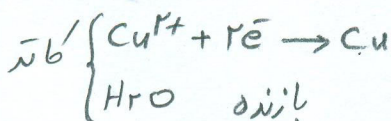 کاتد { Cu²⁺ + ۲e̅ → Cu
H₂O بازنده